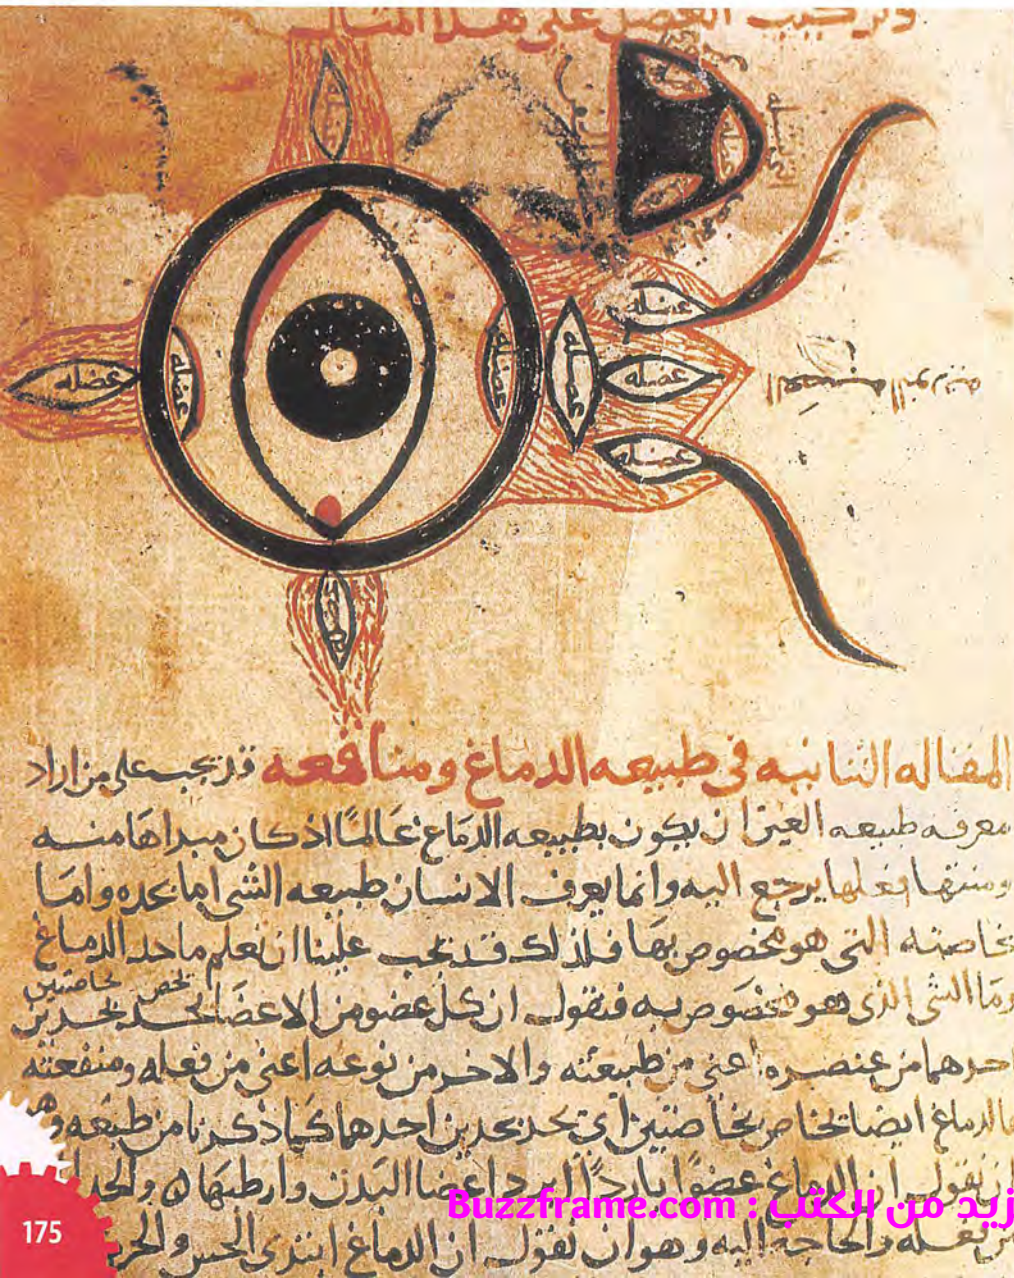 وتركيب العضل على هذا المثال
عضله
عضله
عضله
عضله
عضله
عضله
عضله
عضله
عضله
المقاله الثانيه في طبيعه الدماغ ومنافعه قد يجب على من اراد
معرفه طبيعه العين ان يكون بطبيعه الدماغ عالمًا اذ كان مبداها منه
ومنتها فعلها يرجع اليه وانما يعرف الانسان طبيعه الشي اما بحده واما
بخاصته التي هو مخصوص بها فلذلك قد يجب علينا ان نعلم ما حد الدماغ
وما الشي الذي هو مخصوص به فنقول ان كل عضو من الاعضا يحد بحدين
تخص بخاصتين
احدهما من عنصره اعني من طبيعته والاخر من نوعه اعني من فعله ومنفعته
فالدماغ ايضا بخاصتين اي يحد بحدين احدهما كما ذكرنا من طبعه وهو
ان نقول ان الدماغ عضوًا باردًا ابرد اعضا البدن وارطبها والحد
من فعله والحاجة اليه وهو ان نقول ان الدماغ ابتدى الحس والحر
زيد من الكتب : Buzzframe.com
175